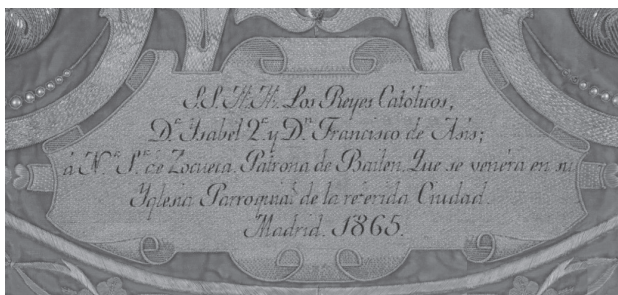 S.S. M.M. Los Reyes Católicos,
D.ª Ysabel 2.ª y D.ⁿ Francisco de Asis;
á N.ª S.ª de Zocueca, Patrona de Bailen, Que se venéra en su
Yglesia Parroquial de la referida Ciudad.
Madrid. 1865.